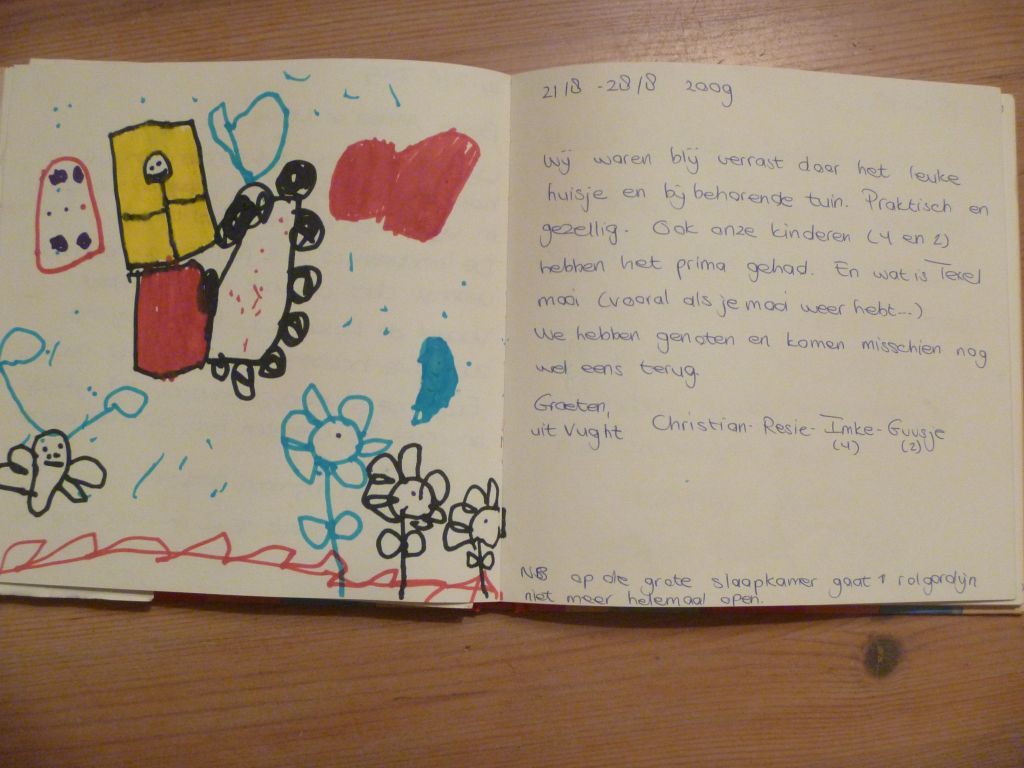 21/8 - 28/8 2009
Wij waren blij verrast door het leuke
huisje en bij behorende tuin. Praktisch en
gezellig. Ook onze kinderen (4 en 2)
hebben het prima gehad. En wat is Texel
mooi (vooral als je mooi weer hebt...)
We hebben genoten en komen misschien nog
wel eens terug.
Groeten,
uit Vught Christian - Resie - Imke - Guusje
(4) (2)
NB op de grote slaapkamer gaat 1 rolgordijn
niet meer helemaal open.